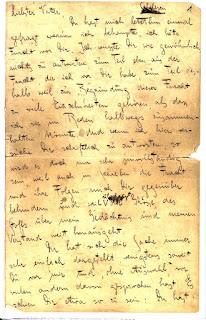 Liebster Vater,
Du hast mich letzthin einmal
gefragt, warum ich behaupte, ich hätte
Furcht vor Dir. Ich wusste Dir, wie gewöhnlich,
nichts zu antworten, zum Teil eben aus der
Furcht die ich vor Dir habe, zum Teil des-
halb weil zur Begründung dieser Furcht
zu viele Einzelheiten gehören als dass
ich sie im Reden halbwegs zusammen-
halten könnte. Und wenn ich hier ver-
suche Dir schriftlich zu antworten, so
wird es doch nur sehr unvollständig
sein, weil auch im Schreiben die Furcht
und ihre Folgen mich Dir gegenüber
behindern und weil die Grösse des
Stoffs über mein Gedächtnis und meinen
Verstand weit hinausgeht.
Dir hat sich die Sache immer
sehr einfach dargestellt, wenigstens soweit
Du vor mir und, ohne Auswahl, vor
vielen andern davon gesprochen hast. Es
schien Dir etwa so zu sein: Du hast